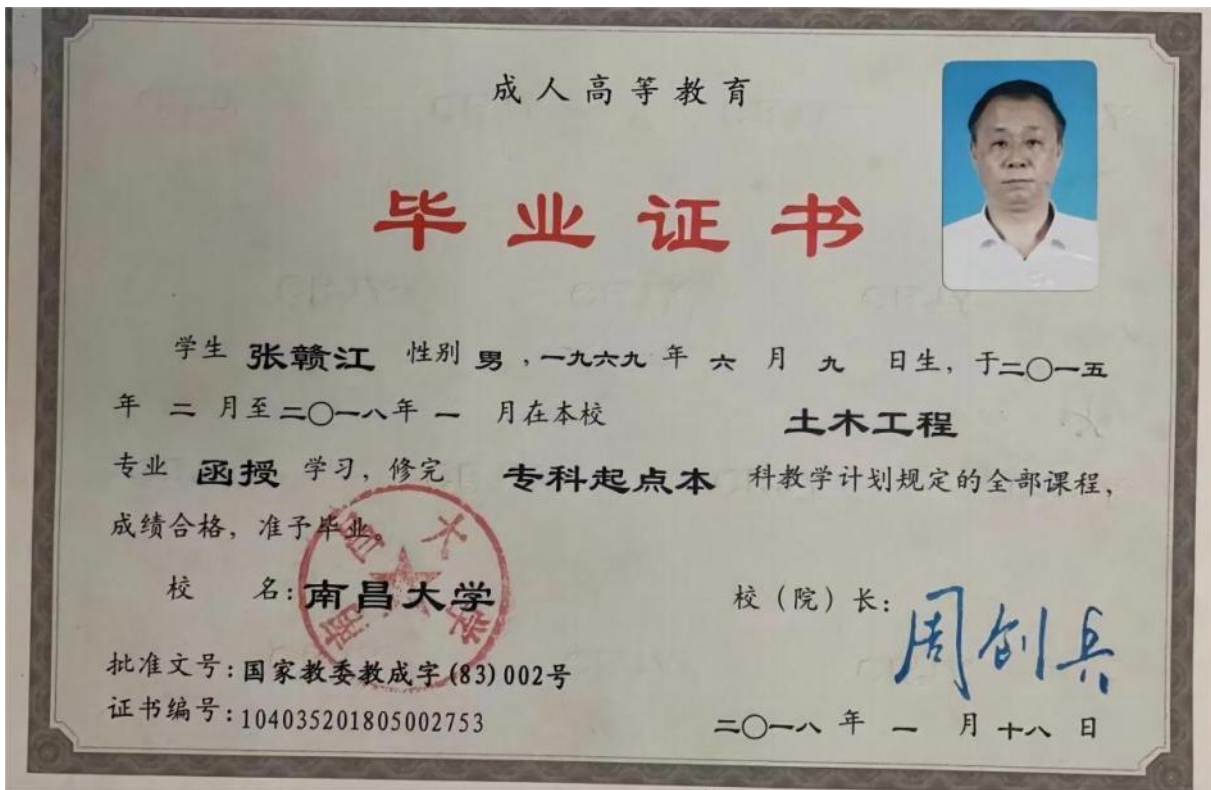 成人高等教育
毕业证书
学生 张赣江 性别 男,一九六九 年 六 月 九 日生,于二〇一五
年 二 月至二〇一八年 一 月在本校 土木工程
专业 函授 学习,修完 专科起点本 科教学计划规定的全部课程,
成绩合格,准予毕业。
校 名:南昌大学
南昌大学
校(院)长:周创兵
批准文号:国家教委教成字(83)002号
证书编号:104035201805002753
二〇一八 年 一 月 十八 日